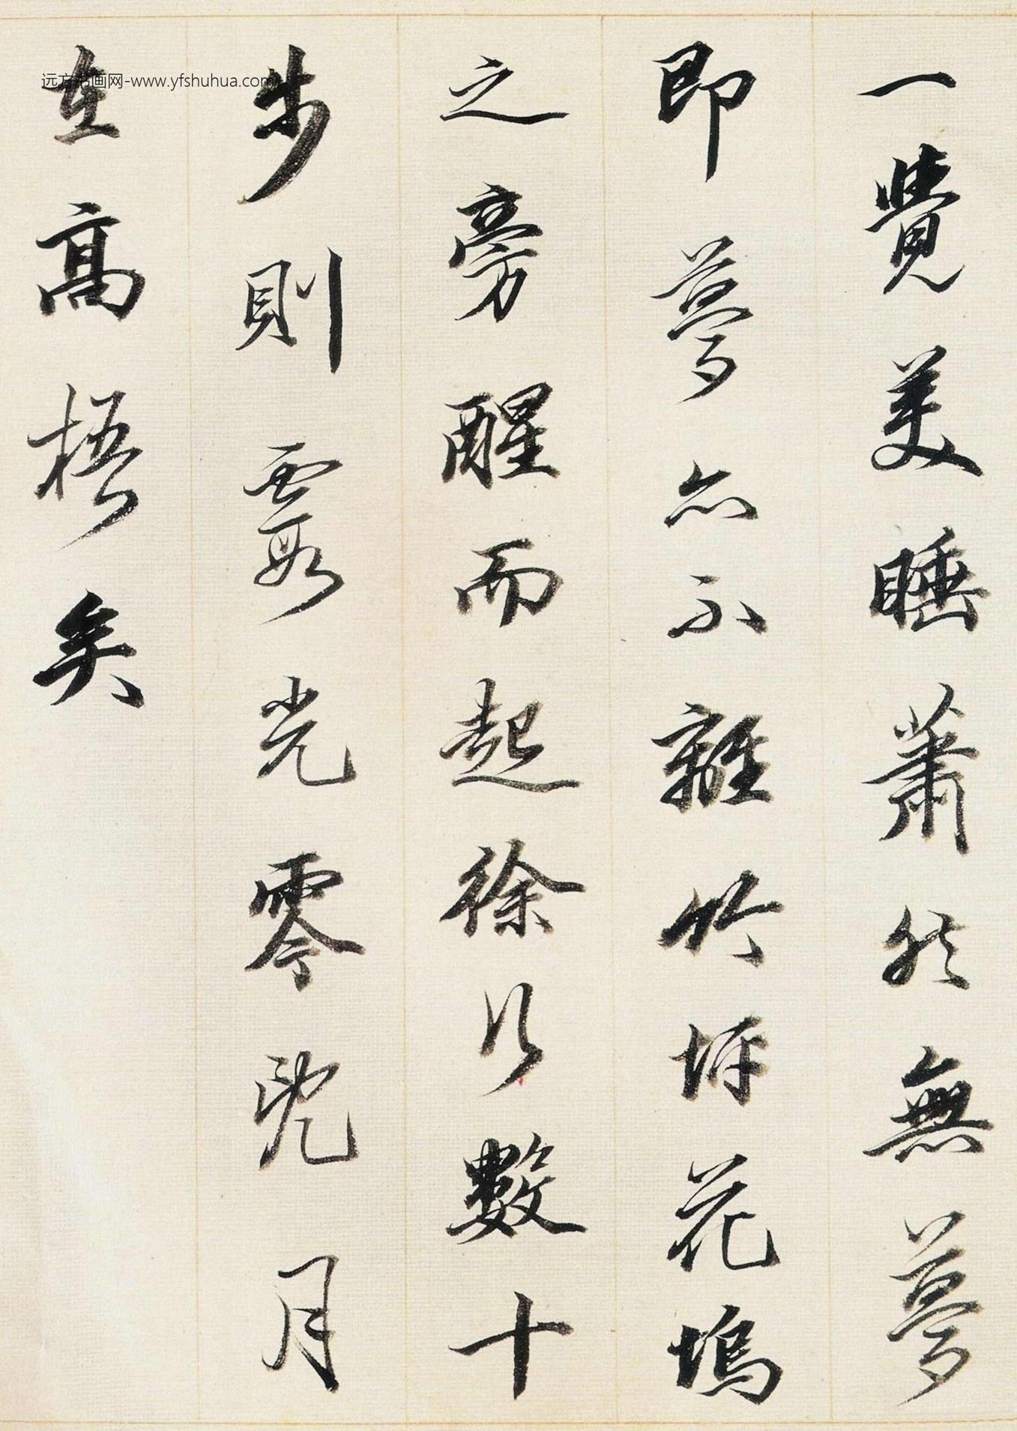 一覺美睡蕭然無夢
即夢亦不離竹坪花塢
之旁醒而起徐行數十
步則霞光零亂月
在高梧矣
远方书画网-www.yfshuhua.com